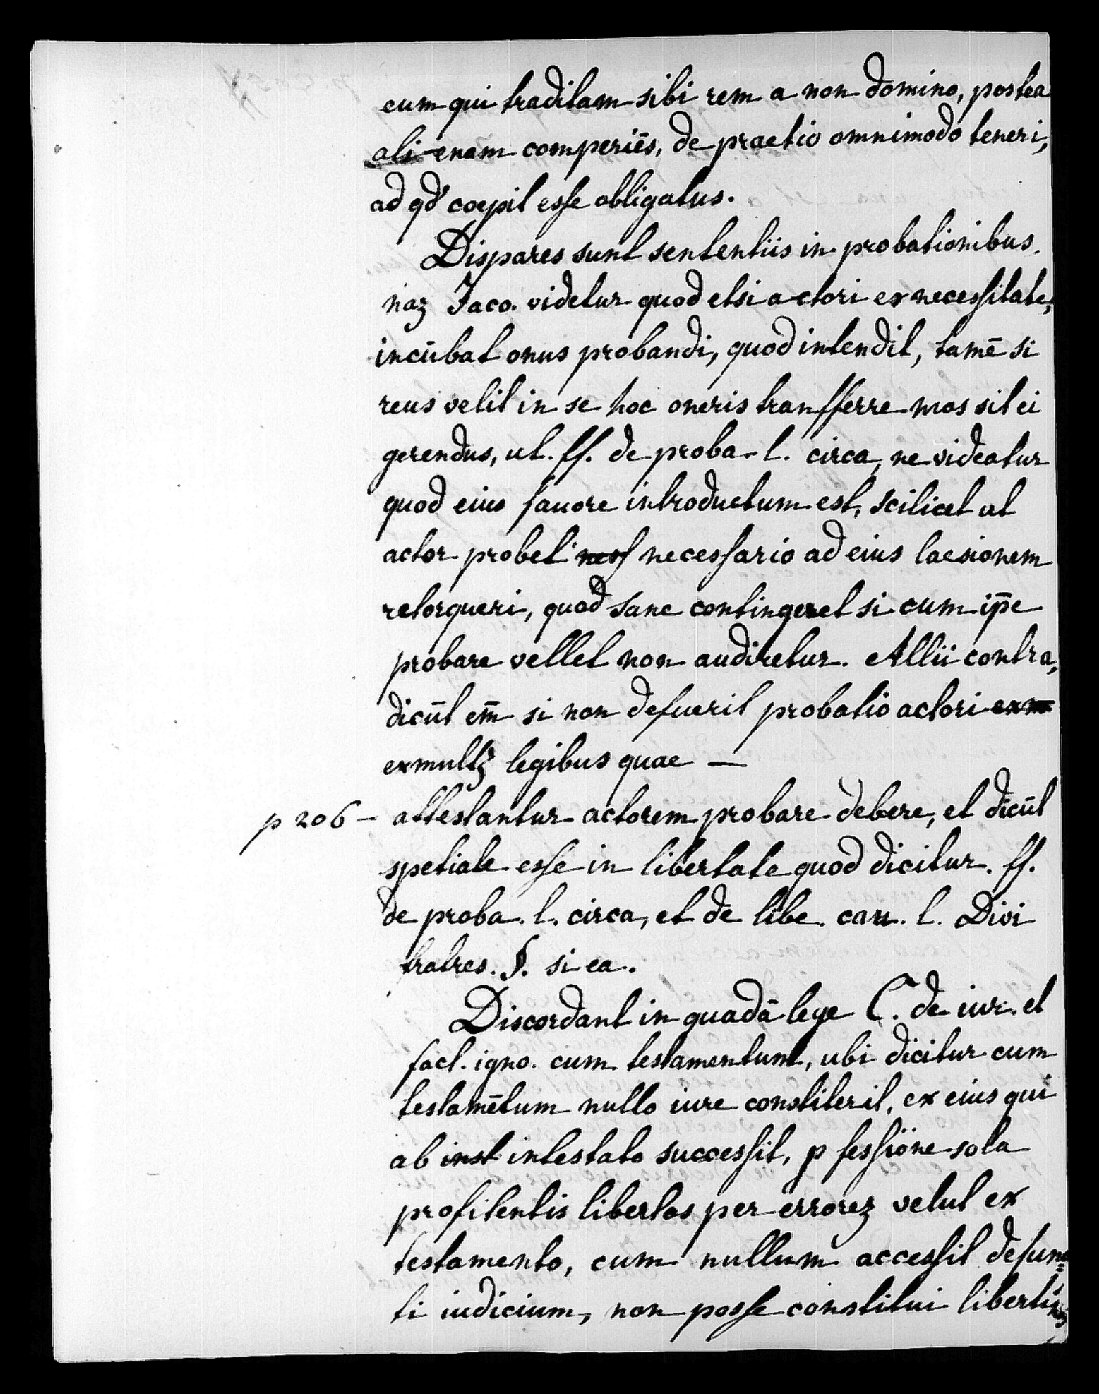 eum qui traditam sibi rem a non domino, postea
alienam comperiēs, de praetio omnimodo teneri,
ad qd' coepit esse obligatus.
Dispares sunt sententiis in probationibus.
naz Jaco. videtur quod etsi actori ex necessitate,
incūbat onus probandi, quod intendit, tamē si
reus velit in se hoc oneris transfferre mos sit ei
gerendus, ut. ff. de proba. l. circa, ne videatur
quod eius favore introductum est, scilicet ut
actor probet ness necessario ad eius laesionem
retorqueri, quod sane contingeret si cum ip̄e
probare vellet non audiretur. Allii contra,
dicūt em̄ si non defuerit probatio actori exm
ex multz legibus quae —
p 206 — attestantur actorem probare debere, et dicūt
spetiale esse in libertate quod dicitur. ff.
de proba. l. circa, et de libe. cau. l. Divi
fratres. §. si ea.
Discordant in quadā lege C. de iur. et
fact. igno. cum testamentum, ubi dicitur cum
testamētum nullo iure constiterit, ex eius qui
ab inst intestato successit, p fessione sola
profitentis libertas per errorez velut ex
testamento, cum nullum accessit defunc=
ti iudicium, non posse constitui libertinos